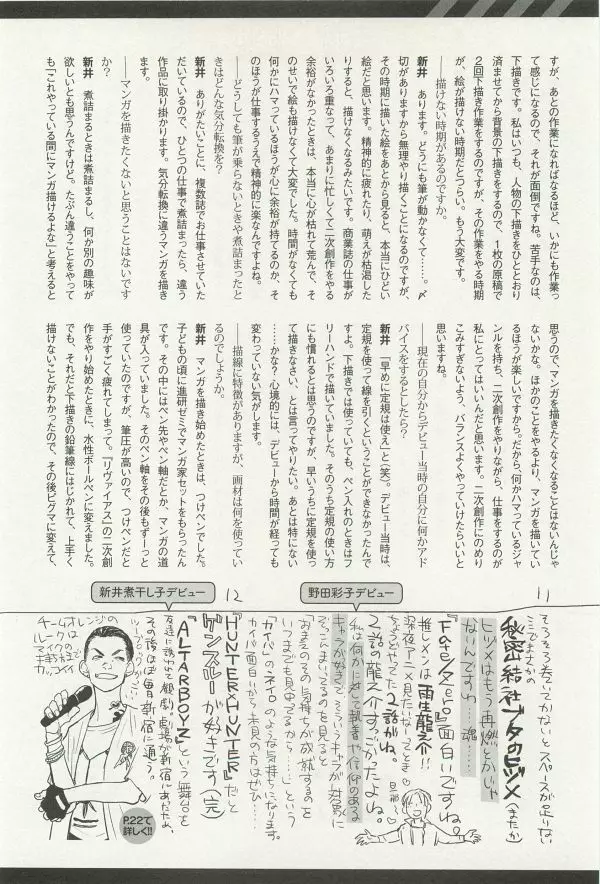 すが、あとの作業になればなるほど、いかにも作業っ
て感じになるので、それが面倒ですね。苦手なのは、
下描きです。私はいつも、人物の下描きをひととおり
済ませてから背景の下描きをするので、1枚の原稿で
2回下描き作業をするのですが、その作業をやる時期
が、絵が描けない時期だとつらい。もう大変です。
──描けない時期があるのですか。
新井　あります。どうにも筆が動かなくて……。〆
切がありますから無理やり描くことになるのですが、
その時期に描いた絵をあとから見ると、本当にひどい
絵だと思います。精神的に疲れたり、萌えが枯渇した
りすると、描けなくなるみたいです。商業誌の仕事が
いろいろ重なって、あまりに忙しくて二次創作をやる
余裕がなかったときは、本当に心が枯れて荒んで、そ
のせいで絵も描けなくて大変でした。時間がなくても
何かにハマっているほうが心に余裕が持てるのか、そ
のほうが仕事するうえで精神的に楽なんですよね。
──どうしても筆が乗らないときや煮詰まったと
きはどんな気分転換を?
新井　ありがたいことに、複数誌でお仕事させていた
だいているので、ひとつの仕事で煮詰まったら、違う
作品に取り掛かります。気分転換に違うマンガを描き
ます。
──マンガを描きたくないと思うことはないです
か?
新井　煮詰まるときは煮詰まるし、何か別の趣味が
欲しいとも思うんですけど。たぶん違うことをやって
も「これやっている間にマンガ描けるよな」と考えると
思うので、マンガを描きたくなくなることはないんじゃ
ないかな。ほかのことをやるより、マンガを描いてい
るほうが楽しいですから。だから、何かハマっているジャ
ンルを持ち、二次創作をやりながら、仕事をするのが
私にとってはいいんだと思います。二次創作にのめり
こみすぎないよう、バランスよくやっていけたらいいと
思いますね。
──現在の自分からデビュー当時の自分に何かアド
バイスをするとしたら?
新井　「早めに定規は使え」と(笑)。デビュー当時は、
定規を使って線を引くということができなかったんで
すよ。下描きでは使っていても、ペン入れのときはフ
リーハンドで描いていました。そのうち定規の使い方
にも慣れるとは思うのですが、早いうちに定規を使っ
て描きなさい、とは言ってやりたい。あとは特にない
……かな? 心境的には、デビューから時間が経っても
変わっていない気がします。
──描線に特徴がありますが、画材は何を使ってい
るのでしょうか。
新井　マンガを描き始めたときは、つけペンでした。
子どもの頃に進研ゼミでマンガ家セットをもらったん
です。その中にはペン先やペン軸だとか、マンガの道
具が入っていました。そのペン軸をその後もずーっと
使っていたのですが、筆圧が高いので、つけペンだと
手がすごく疲れてしまって。『リヴァイアス』の二次創
作をやり始めたときに、水性ボールペンに変えました。
でも、それだと下描きの鉛筆線にはじかれて、上手く
描けないことがわかったので、その後ピグマに変えて、
11
野田彩子デビュー
そろそろ巻いてかないとスペースが足りない
ここでまさかの
秘密結社ブタのヒヅメ(またか)
ヒヅメはもう再燃とかじゃ
ないんですね…魂…
『Fate/Zero』面白いですね。
推しメンは雨生龍之介!!
深夜アニメ見たいな〜ってことを
ちょうどやってた2話がね。
旦那♡
2話の龍之介すごかったよね。
私は何かに対して執着や信仰のある
キャラが好きで、そういうキャラが対象に
そっこんまいってるのを見ると
おまえのその気持ちが成就するのを
いつまでも見守ってるから……!という
「カイバ」のネイロのような気持ちになります。
カイバ面白いから未見の方はぜひ…
12
新井煮干し子デビュー
『HUNTER×HUNTER』だと
ゲンスルーが好きです(完)
『ALTARBOYZ』という舞台を
友達に誘われて観劇。劇場が新宿にあったため、
その後ほぼ毎日新宿に通う。
オレンジの
P.22で
詳しく!!